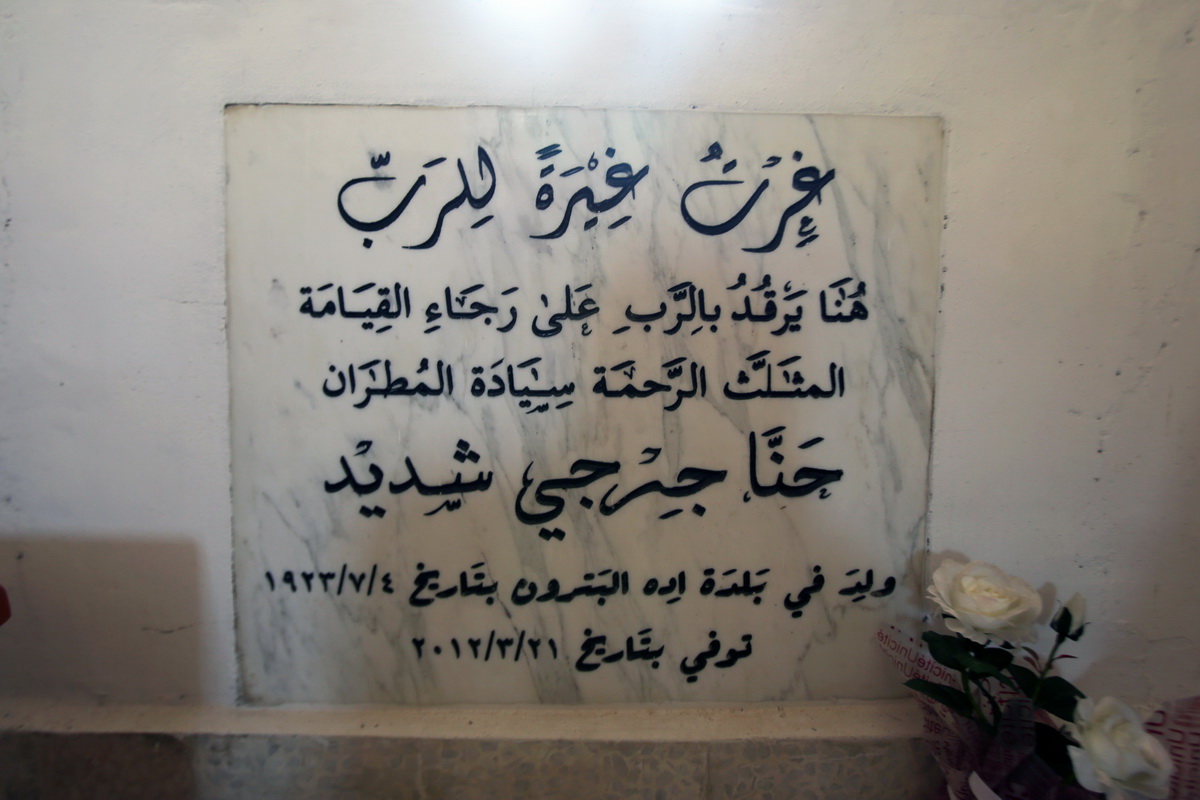 غِرْتُ غِيْرَةً لِلرَبّ
هُنَا يَرقُدُ بالِرَّبِ عَلىٰ رَجَاءِ القِيَامَة
المثَلَّث الرَّحمَة سِيَادَة المُطرَان
حَنَّا جِرْجي شديْد
ولِدَ في بَلدَة اِده البَترون بتَاريخ ١٩٢٣/٧/٤
توفي بتَاريخ ٢٠١٢/٣/٢١